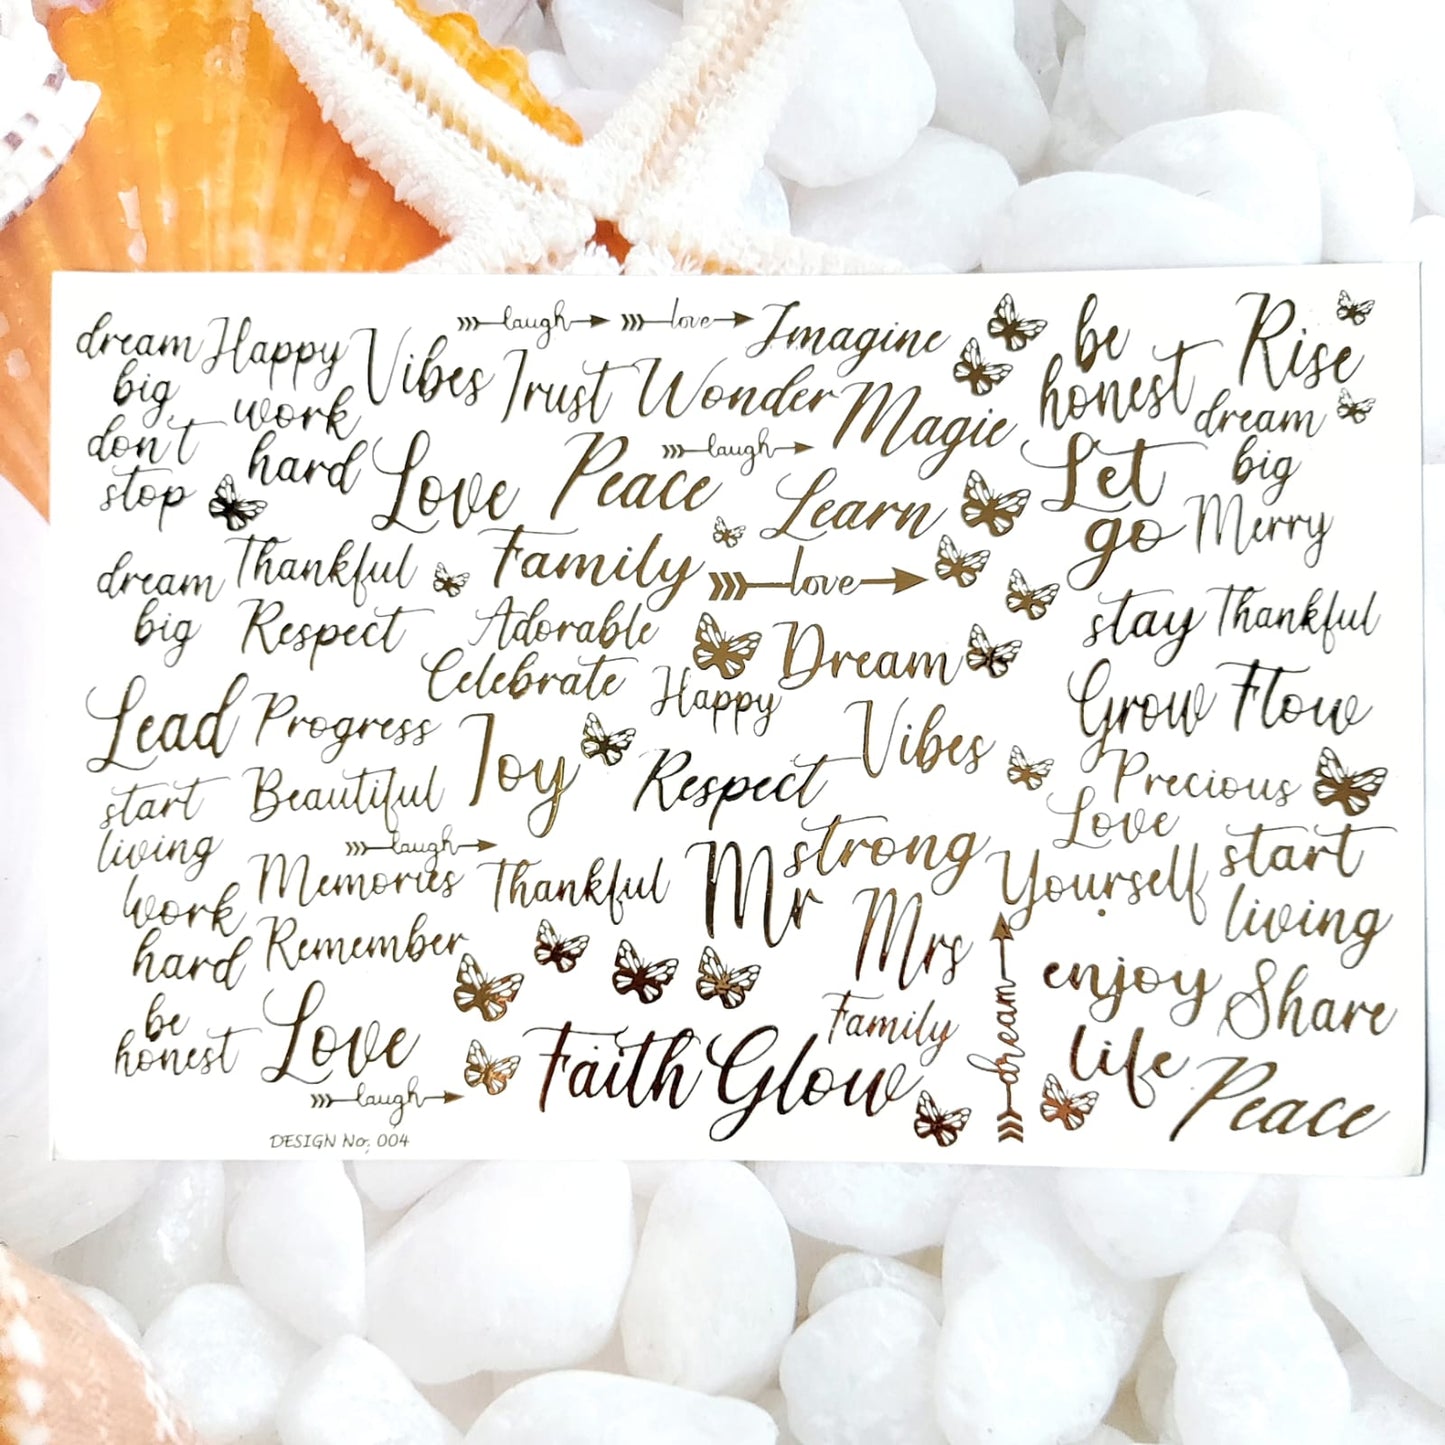 dream
big
don't
stop
Happy
work
hard
Vibes
laugh
love
Trust
Wonder
Imagine
Magic
be
honest
Rise
dream
big
Love
Peace
laugh
Learn
Let
go
Merry
dream
big
Thankful
Respect
Family
love
Adorable
Celebrate
Happy
Dream
stay
Thankful
Grow
Flow
Lead
Progress
Joy
Respect
Vibes
Precious
start
living
Beautiful
laugh
Memories
Thankful
Mr
strong
Mrs
Love
Yourself
start
living
work
hard
Remember
be
honest
Love
laugh
Faith
Glow
Family
dream
enjoy
life
Share
Peace
DESIGN No; 004